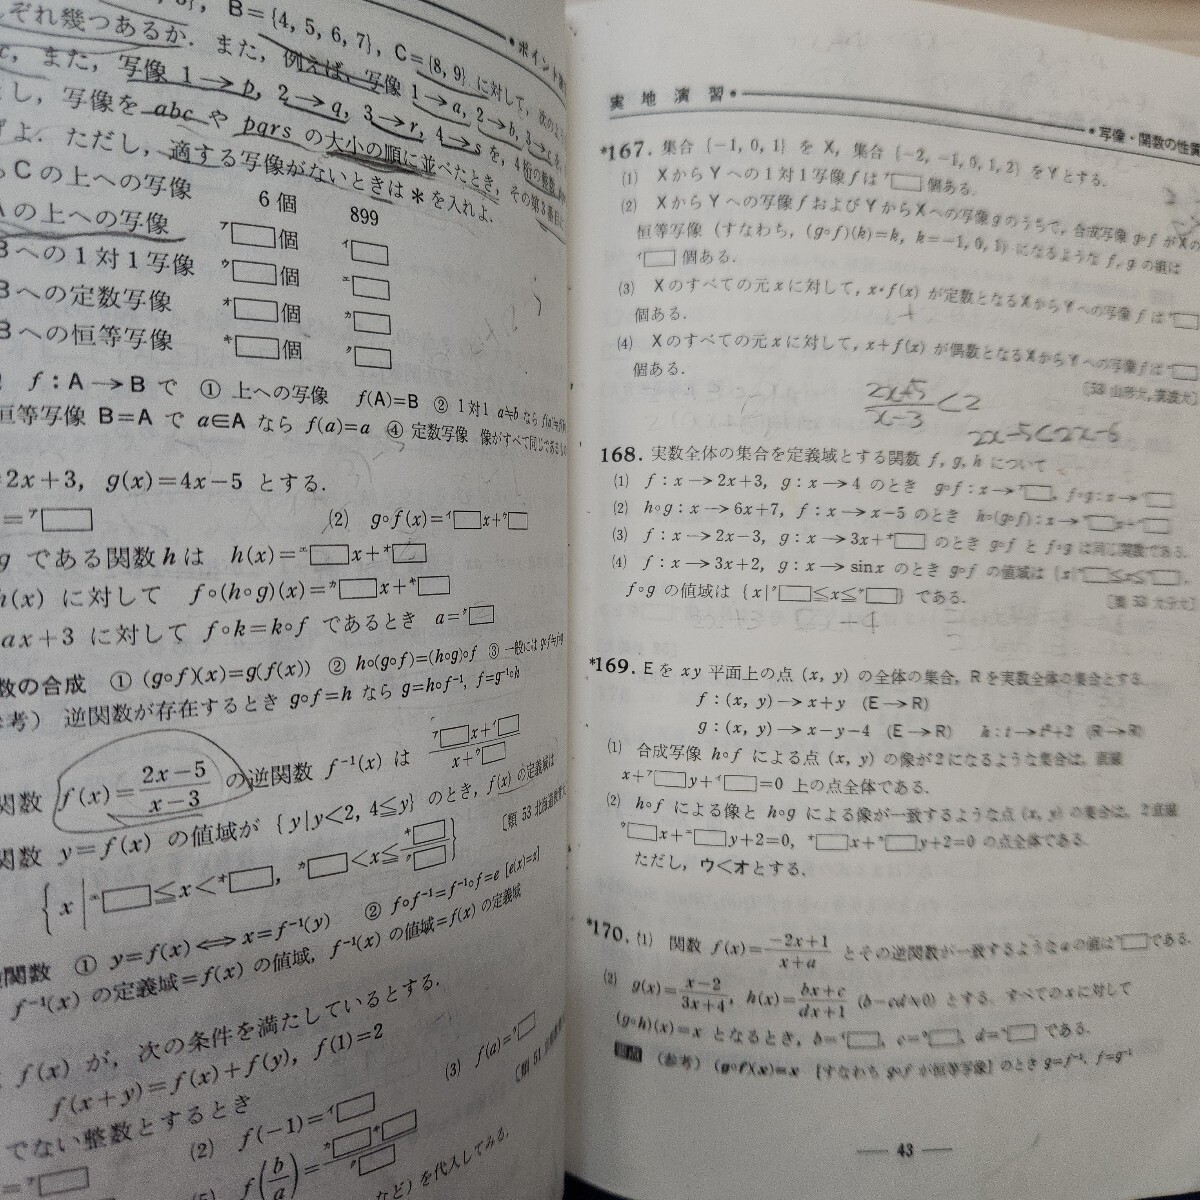 B={4, 5, 6, 7}, C={8, 9} に対して, 次の
ぞれ幾つあるか. また, 例えば, 写像 1→a, 2→b, 3→c,
c, また, 写像 1→p, 2→q, 3→r, 4→s を, 4桁の整数
とし, 写像を abc や pqrs の大小の順に並べたとき, その第5番目
げよ. ただし, 適する写像がないときは＊を入れよ.
らCの上への写像 6個 899
Aの上への写像 ア□個 イ□
Bへの1対1写像 ウ□個 エ□
Bへの定数写像 オ□個 カ□
Bへの恒等写像 キ□個 ク□
f：A→B で ① 上への写像 f(A)=B ② 1対1 a≠b なら
恒等写像 B=A で a∈A なら f(a)=a ④ 定数写像 像がすべて同じである
=2x+3, g(x)=4x-5 とする.
=ア□ (2) g∘f(x)=イ□x+ウ□
g である関数hは h(x)=エ□x+オ□
h(x) に対して f∘(h∘g)(x)=カ□x+キ□
ax+3 に対して f∘k=k∘f であるとき a=ク□
数の合成 ① (g∘f)(x)=g(f(x)) ② h∘(g∘f)=(h∘g)∘f ③ 一般には g∘f≠f∘g
参考) 逆関数が存在するとき g∘f=h なら g=h∘f⁻¹, f=g⁻¹∘h
関数 f(x)=(2x-5)/(x-3) の逆関数 f⁻¹(x) は (ア□x+イ□)/(x+ウ□)
関数 y=f(x) の値域が {y|y<2, 4≦y} のとき, f(x) の定義域は
{x|エ□≦x<オ□, カ□<x≦キ□/ク□}
〔類 53 北海道
関数 ① y=f(x)⟺x=f⁻¹(y) ② f∘f⁻¹=f⁻¹∘f=e [e(x)=x]
f⁻¹(x) の定義域=f(x) の値域, f⁻¹(x) の値域=f(x) の定義域
f(x) が, 次の条件を満たしているとする.
f(x+y)=f(x)+f(y), f(1)=2
でない整数とするとき
=ア□ (2) f(-1)=イ□ (3) f(a)=ウ□
f(b/a)=
など) を代入してみる.
実地演習
写像・関数の性質
*167. 集合 {-1, 0, 1} を X, 集合 {-2, -1, 0, 1, 2} を Y とする.
(1) XからYへの1対1写像fはア□個ある.
(2) XからYへの写像fおよびYからXへの写像gのうちで, 合成写像 g∘f がXの
恒等写像 (すなわち, (g∘f)(k)=k, k=-1, 0, 1) になるような f, g の組は
イ□個ある.
(3) Xのすべての元xに対して, x・f(x) が定数となるXからYへの写像fはウ□
個ある.
(4) Xのすべての元xに対して, x+f(x) が偶数となるXからYへの写像fはエ□
個ある.
(2x+5)/(x-3)<2
168. 実数全体の集合を定義域とする関数 f, g, h について
(1) f：x→2x+3, g：x→4 のとき g∘f：x→ア□, f∘g：x→イ□
(2) h∘g：x→6x+7, f：x→x-5 のとき h∘(g∘f)：x→ウ□x+エ□
(3) f：x→2x-3, g：x→3x+オ□ のとき g∘f と f∘g は同じ関数である.
(4) f：x→3x+2, g：x→sinx のとき g∘f の値域は {x|カ□≦x≦キ□},
f∘g の値域は {x|ク□≦x≦ケ□} である.
〔類 53 大分大〕
*169. E を xy 平面上の点 (x, y) の全体の集合, R を実数全体の集合とする.
f：(x, y)→x+y (E→R)
g：(x, y)→x-y-4 (E→R) h：t→t²+2 (R→R)
(1) 合成写像 h∘f による点 (x, y) の像が2になるような集合は, 直線
x+ア□y+イ□=0 上の点全体である.
(2) h∘f による像と h∘g による像が一致するような点 (x, y) の集合は, 2直線
ウ□x+エ□y+2=0, オ□x+カ□y+2=0 の点全体である.
ただし, ウ<オとする.
*170. (1) 関数 f(x)=(-2x+1)/(x+a) とその逆関数が一致するようなaの値はア□である.
(2) g(x)=(x-2)/(3x+4), h(x)=(bx+c)/(dx+1) (b-cd≠0) とする. すべてのxに対して
(g∘h)(x)=x となるとき, b=イ□, c=ウ□, d=エ□ である.
(参考) (g∘f)(x)=x [すなわち g∘f が恒等写像] のとき g=f⁻¹, f=g⁻¹
— 43 —